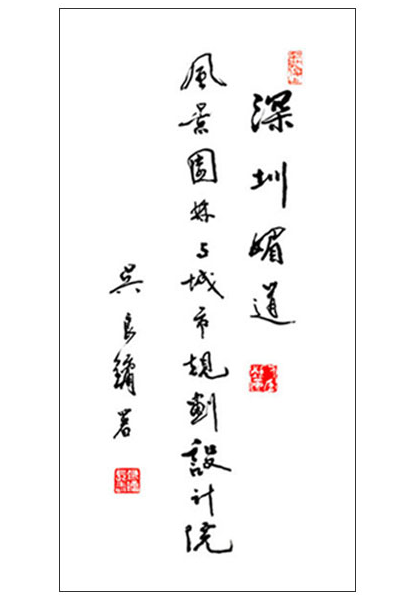 深圳媚道
風景園林与城市規劃設计院
吴良鏞署